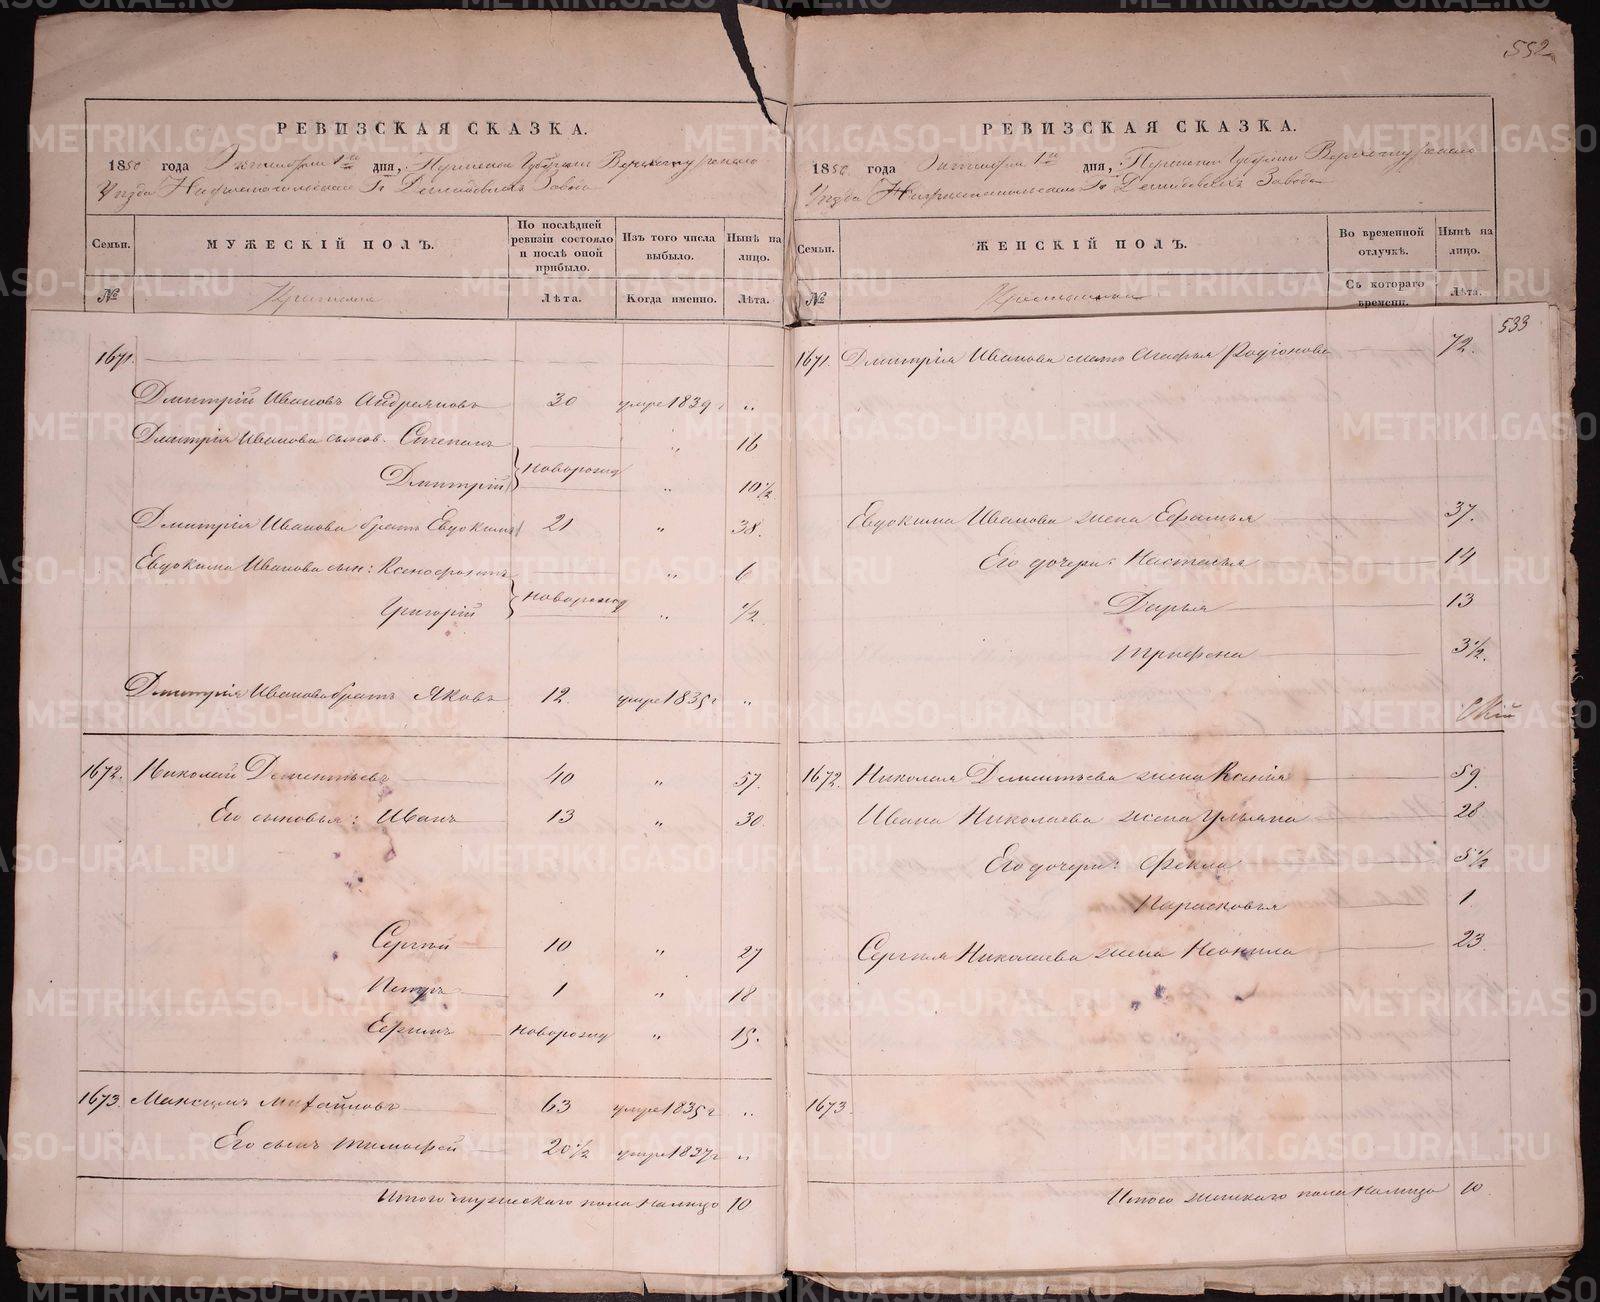 552
РЕВИЗСКАЯ СКАЗКА.
1850 года Октября 1го дня, Пермской Губернии Верхотурскаго
Уезда Нижнетагильскаго Гг Демидовыхъ Завода
Семьи.
МУЖЕСКІЙ ПОЛЪ.
По послѣдней ревизіи состояло и послѣ оной прибыло.
Изъ того числа выбыло.
Нынѣ на лицо.
№
Лѣта.
Когда именно.
Лѣта.
1671.
Дмитрій Ивановъ Андреяновъ 30 умре 1839 г „
Дмитрія Иванова сынов. Степанъ „ 16
новорожд
Дмитрій „ 10 1/2
Дмитрія Иванова братъ Евдокимъ 21 „ 38.
Евдокима Иванова сын: Ксенофонтъ „ 6
новорожд
Григорій „ 1/2
Дмитрія Иванова братъ Яковъ 12. умре 1835 г „
1672. Николай Дементьевъ 40 „ 57.
Его сыновья: Иванъ 13 „ 30.
Сергѣй 10 „ 27
Петръ 1 „ 18
Ефимъ новорожд „ 15.
1673. Максимъ Михайловъ 63 умре 1835 г „
Его сынъ Тимофей 20 1/2 умре 1837 г „
Итого мужескаго пола налицо 10
РЕВИЗСКАЯ СКАЗКА.
1850 года Октября 1го дня, Пермской Губерніи Верхотурскаго
Уезда Нижнетагильскаго Гг Демидовыхъ Завода
Семьи.
ЖЕНСКІЙ ПОЛЪ.
Во временной отлучкѣ.
Нынѣ на лицо.
№
Съ котораго времени.
Лѣта.
533
1671. Дмитрія Иванова мать Агафья Родіонова 72.
Евдокима Иванова жена Ефимья 37.
Его дочери: Настасья 14
Дарья 13
3 1/2.
1672. Николая Дементьева жена Ксенія 59.
Ивана Николаева жена Ульяна 28
Его дочери: Фекла 5 1/2
Парасковья 1.
Сергѣя Николаева жена Неонила 23.
1673.
Итого женскаго пола налицо 10.
METRIKI.GASO-URAL.RU